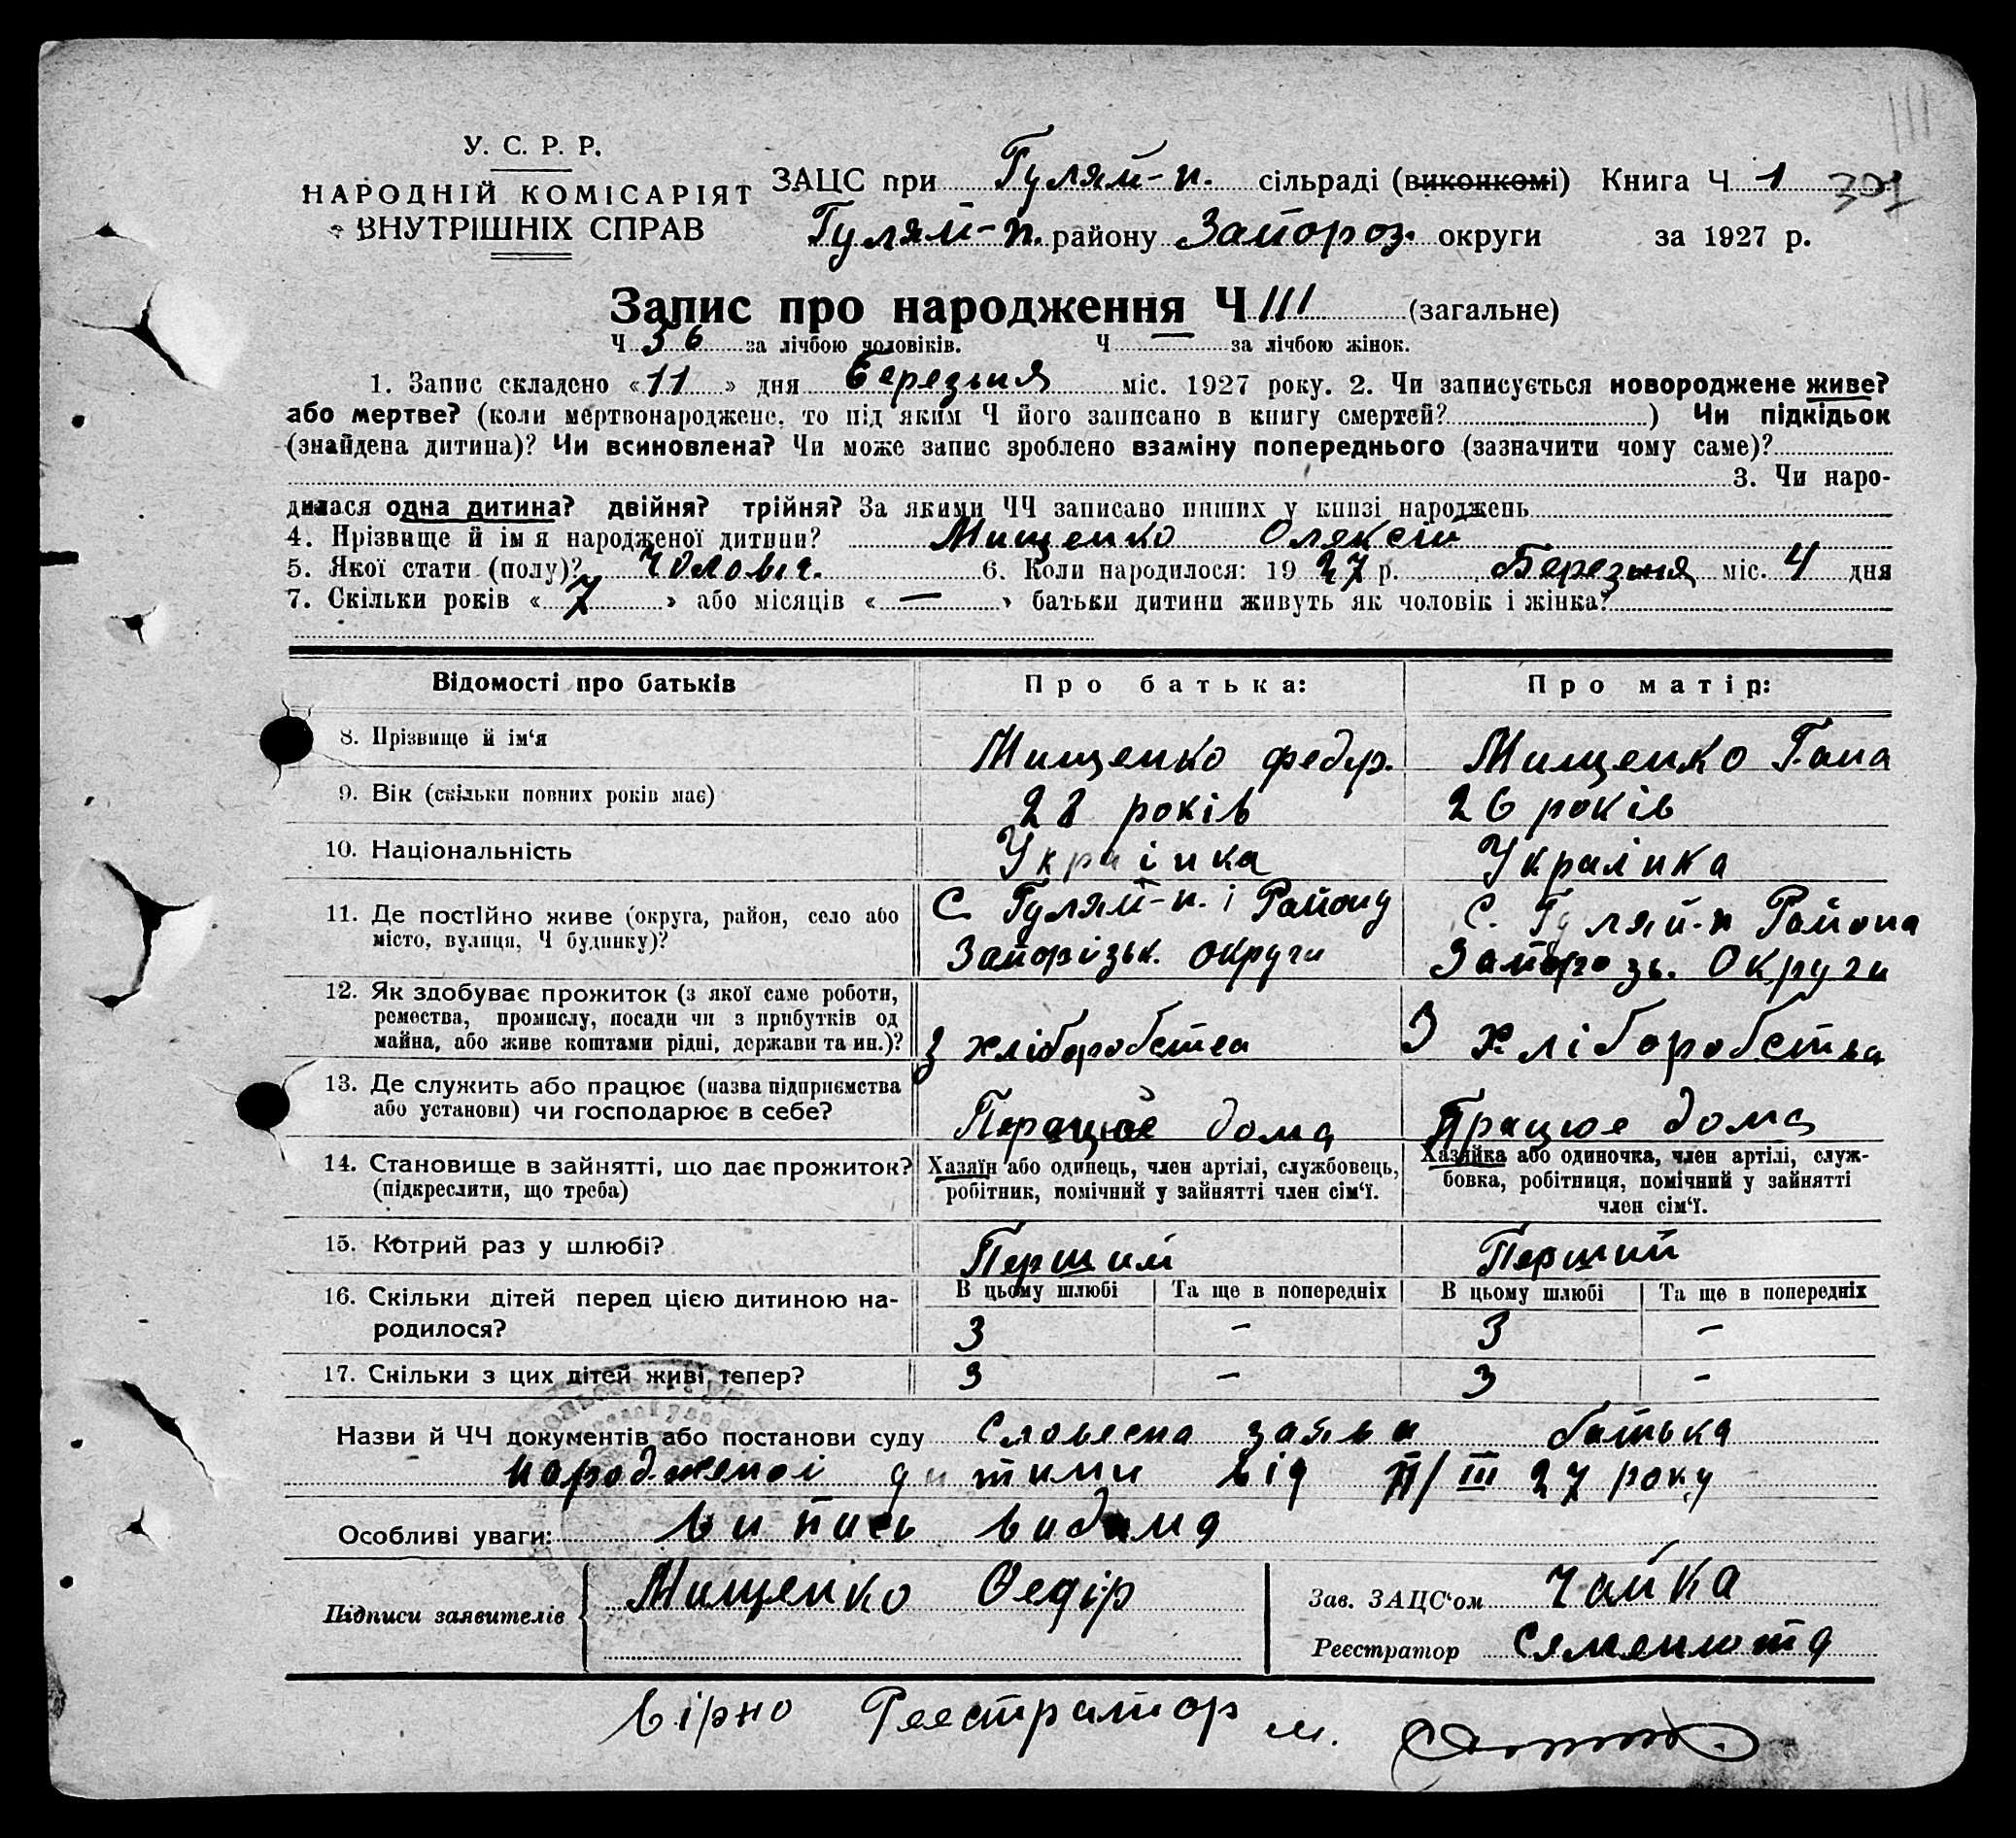 111
У. С. Р. Р.
НАРОДНІЙ КОМІСАРІЯТ
ВНУТРІШНІХ СПРАВ
ЗАЦС при Гуляй-п. сільраді (виконкомі) Книга Ч 1 301
Гуляй-п. району Запороз. округи за 1927 р.
Запис про народження Ч 111 (загальне)
Ч 56 за лічбою чоловіків. Ч — за лічбою жінок.
1. Запис складено «11» дня Березьня міс. 1927 року. 2. Чи записується новороджене живе?
або мертве? (коли мертвонароджене, то під яким Ч його записано в книгу смертей? ) Чи підкідьок
(знайдена дитина)? Чи всиновлена? Чи може запис зроблено взаміну попереднього (зазначити чому саме)?
3. Чи наро-
дилася одна дитина? двійня? трійня? За якими ЧЧ записано инших у книзі народжень
4. Прізвище й ім я народженої дитини? Мищенко Олексій
5. Якої стати (полу)? Чоловіч. 6. Коли народилося: 1927 р. Березня міс. 4 дня
7. Скільки років «7» або місяців «—» батьки дитини живуть як чоловік і жінка?
Відомості про батьків Про батька: Про матір:
8. Прізвище й ім‘я Мищенко Федір. Мищенко Гана
9. Вік (скільки повних років має) 28 років 26 років
10. Національність Українка Українка
11. Де постійно живе (округа, район, село або
місто, вулиця, Ч будинку)?
С Гуляй-п. і Району
Запорізьк. округи
С. Гуляй-п Района
Запорозь. Округи
12. Як здобуває прожиток (з якої саме роботи,
ремества, промислу, посади чи з прибутків од
майна, або живе коштами рідні, держави та ин.)?
З хліборобства З Хліборобства
13. Де служить або працює (назва підприємства
або установи) чи господарює в себе?
Працює дома Працюе дома
14. Становище в зайнятті, що дає прожиток?
(підкреслити, що треба)
Хазяїн або одинець, член артілі, службовець,
робітник, помічний у зайнятті член сім‘ї.
Хазяйка або одиночка, член артілі, служ-
бовка, робітниця, помічний у зайнятті
член сім‘ї.
15. Котрий раз у шлюбі? Перший Перший
16. Скільки дітей перед цією дитиною на-
родилося?
В цьому шлюбі Та ще в попередніх В цьому шлюбі Та ще в попередніх
3 – 3 –
17. Скільки з цих дітей живі тепер? 3 – 3 –
Назви й ЧЧ документів або постанови суду Словесна заява батька
народженої дитини від 11/III 27 року
Особливі уваги: Випись видана
Підписи заявителів Мищенко Федір
Зав. ЗАЦС‘ом Чайка
Реєстратор Семенюта
Вірно Реєстратор